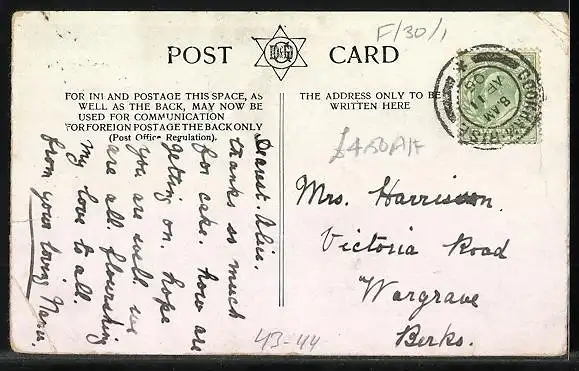 POST CARD
D&G
F/30/1
FOR INLAND POSTAGE THIS SPACE, AS
WELL AS THE BACK, MAY NOW BE
USED FOR COMMUNICATION
FOR FOREIGN POSTAGE THE BACK ONLY
(Post Office Regulation).
THE ADDRESS ONLY TO BE
WRITTEN HERE
8.AM
AP 11
05
Dearest Alice.
thanks so much
for cake. how are
getting on. hope
you are well. we
are all flourishing
My love to all.
from your loving
Mrs. Harrison.
Victoria Road
Wargrave
Berks.
43-44